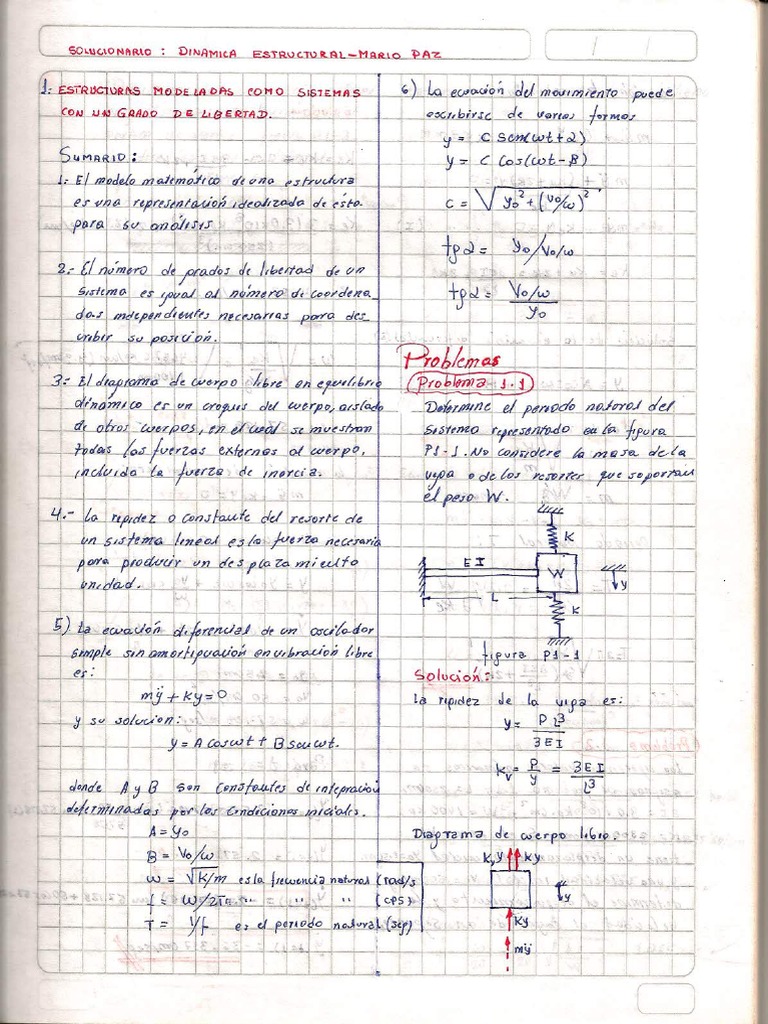 SOLUCIONARIO : DINAMICA ESTRUCTURAL-MARIO PAZ
1. ESTRUCTURAS MODELADAS COMO SISTEMAS
CON UN GRADO DE LIBERTAD.
SUMARIO:
1.- El modelo matemático de una estructura
es una representación idealizada de ésta
para su análisis
2.- El número de grados de libertad de un
sistema es igual al número di coordena_
das independientes necesarias para des_
cribir su posición.
3.- El diagrama de cuerpo libre en equilibrio
dinámico es un croquis del cuerpo, aislado
de otros cuerpos, en el cual se muestran
todas las fuerzas externas al cuerpo,
incluida la fuerza de inercia.
4.- La rigidez o constante del resorte de
un sistema lineal es la fuerza necesaria
para producir un desplazamiento
unidad.
5) La ecuación diferencial de un oscilador
simple sin amortiguación en vibración libre
es:
mÿ + Ky = 0
y su solucion:
y = A cos wt + B sen wt.
donde A y B son constantes de integracion
determinadas por las condiciones iniciales.
A = y₀
B = V₀/w
w = √K/m es la frecuencia natural (rad/s
f = w/2π " " " (cps)
T = 1/f es el periodo natural (seg)
6) La ecuación del movimiento puede
escribirse de varias formas
y = C Sen(wt+2)
y = C Cos(wt-B)
C = √ y₀² + (V₀/w)²
tg 2 = y₀/V₀/w
tg 2 = V₀/w / y₀
Problemas
Problema 1.1
Determine el periodo natural del
sistema representado en la figura
P1-1. No considere la masa de la
viga o de los resortes que soportan
el peso W.
K
EI
W
y
L
K
figura P1-1
Solución:
La rigidez de la viga es:
y = PL³ / 3EI
Kv = P/y = 3EI / L³
Diagrama de cuerpo libre.
Kvy Ky
y
Ky
mÿ